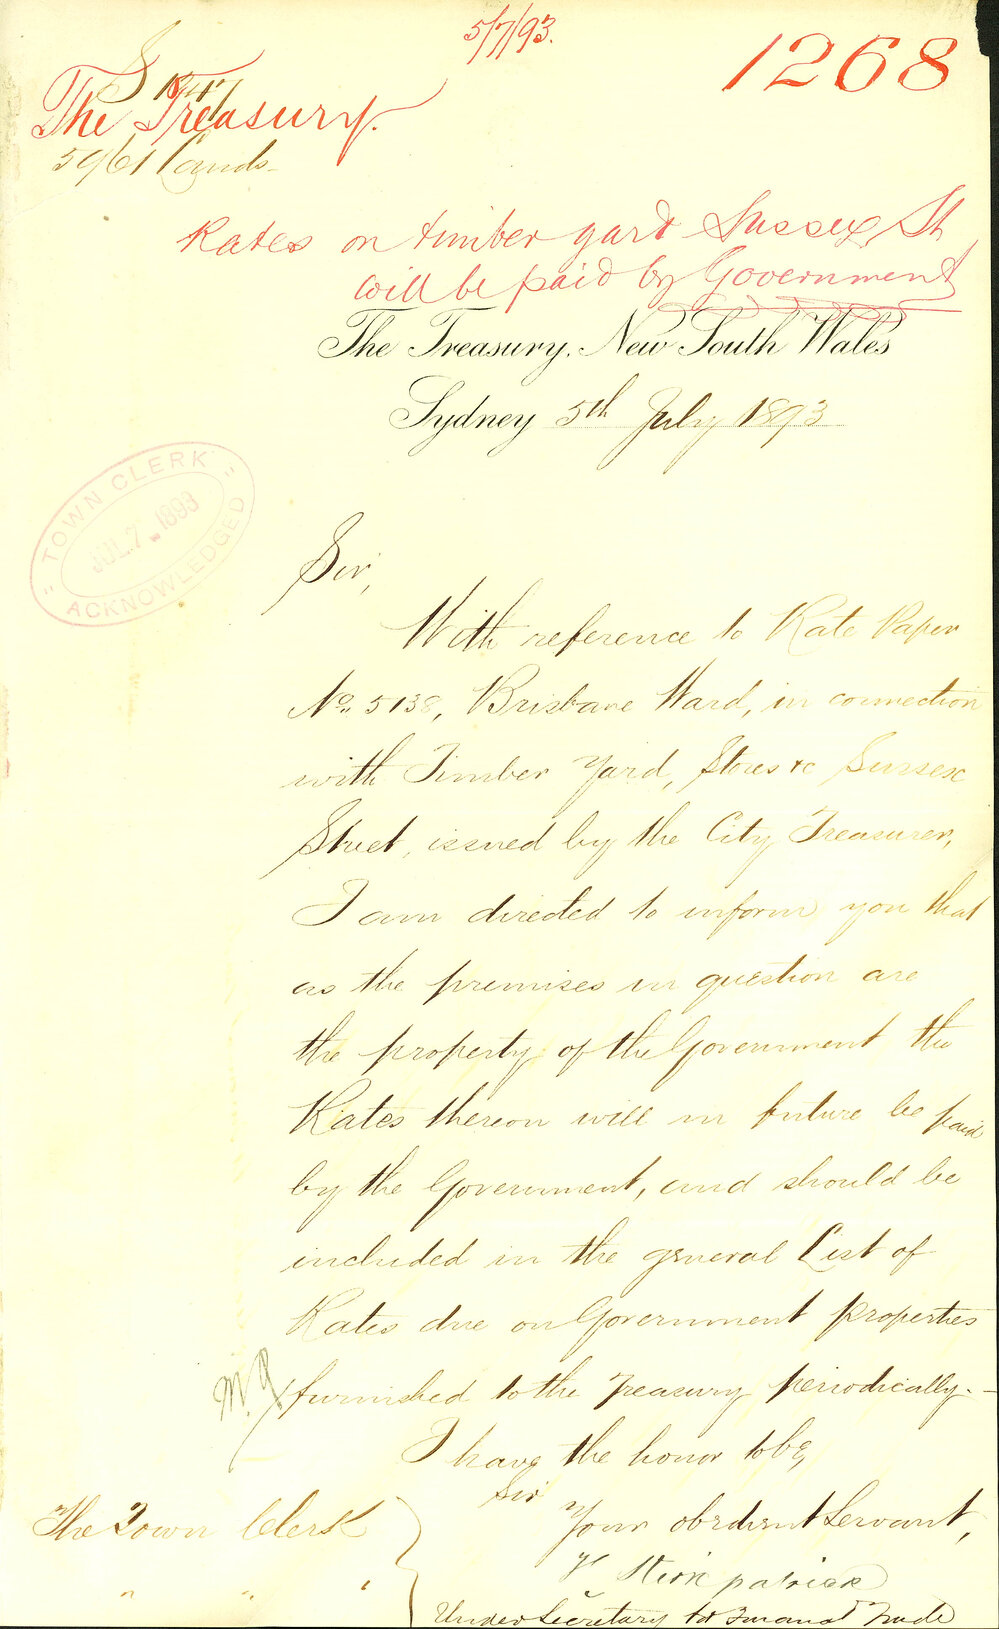 5/7/93.
1268
The Treasury.
5961 Lands
Rates on timber yard Sussex St
will be paid by Government
The Treasury, New South Wales
Sydney 5th July 1893
"TOWN CLERK"
JUL. 7. 1893
ACKNOWLEDGED
Sir,
With reference to Rate Paper
No. 5138, Brisbane Ward, in connection
with Timber Yard, Stores &c Sussex
Street, issued by the City Treasurer,
I am directed to inform you that
as the premises in question are
the property of the Government the
Rates thereon will in future be paid
by the Government, and should be
included in the general List of
Rates due on Government properties
furnished to the Treasury periodically.—
I have the honor to be,
Sir
Your obedient Servant,
Kirkpatrick
The Town Clerk
Under Secretary for Finance & Trade